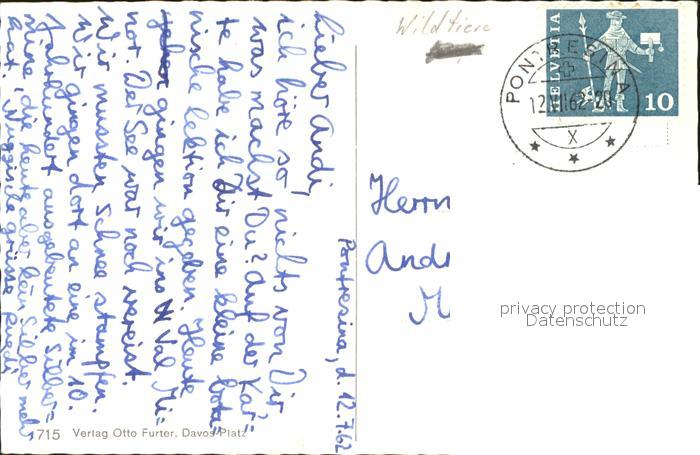 Pontresina, d. 12.7.62
Lieber Andi,
ich höre so nichts von Dir
was machst Du? Auf der Kar=
te habe ich Dir eine kleine bota=
nische Lektion gegeben. Heute
gingen wir ins Val Mi=
nor. Der See war noch vereist.
Wir mussten Schnee stampfen.
Wir gingen dort an eine, im 10.
Jahrhundert ausgebeutete Silber=
mine, die heute aber kein Silber mehr
hat. grüsse Rudi
715 Verlag Otto Furter, Davos-Platz
Wildtiere
HELVETIA
10
PONTRESINA
12.VII.62-20
X
Herrn
Andr
M
privacy protection
Datenschutz